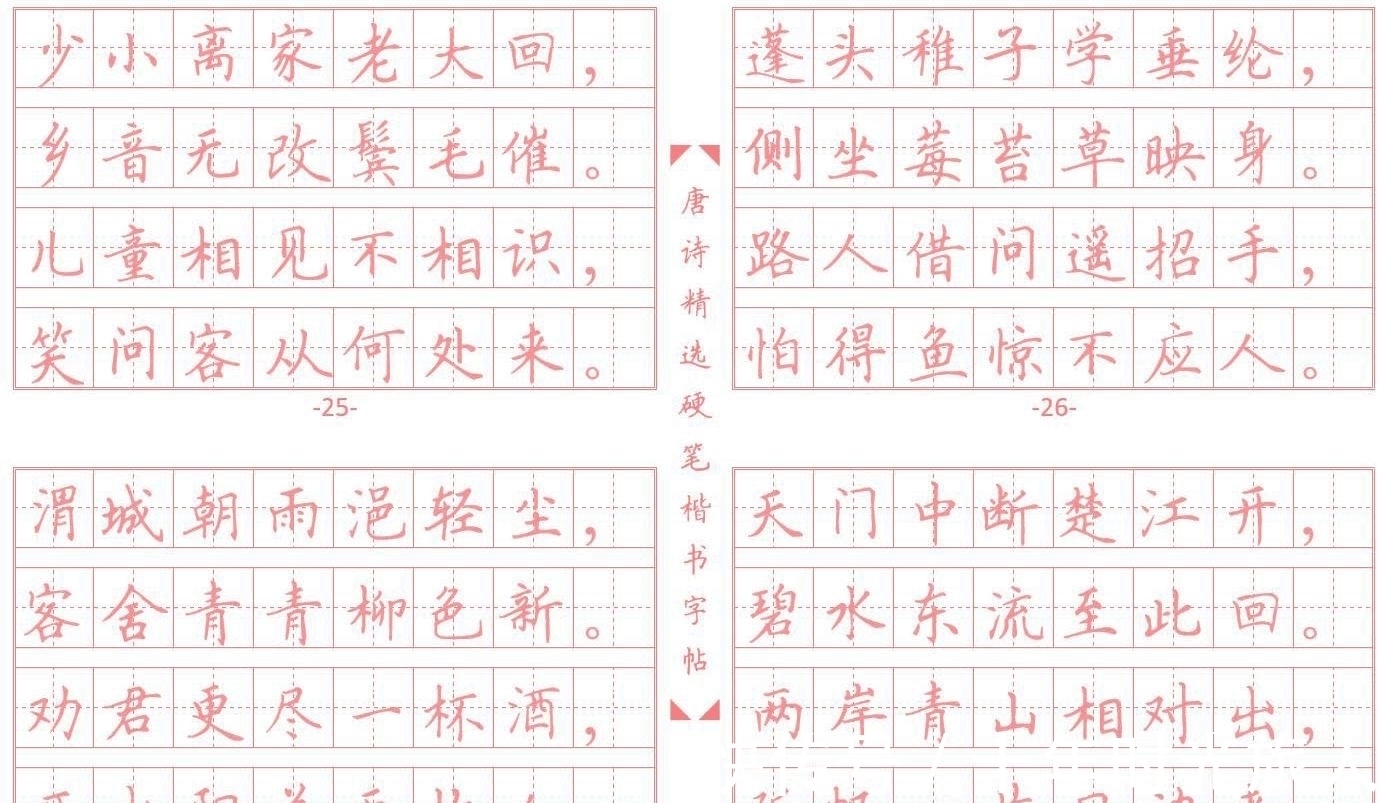 少小离家老大回，
乡音无改鬓毛催。
儿童相见不相识，
笑问客从何处来。
-25-
蓬头稚子学垂纶，
侧坐莓苔草映身。
路人借问遥招手，
怕得鱼惊不应人。
-26-
唐诗精选硬笔楷书字帖
渭城朝雨浥轻尘，
客舍青青柳色新。
劝君更尽一杯酒，
天门中断楚江开，
碧水东流至此回。
两岸青山相对出，